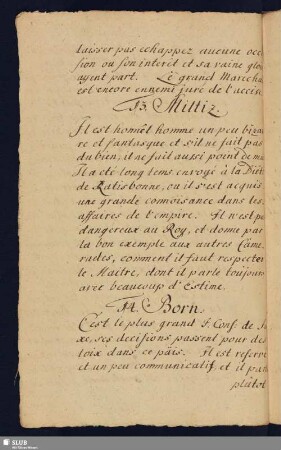 laisser pas echappez aucune occa
sion ou son interêt et sa vaine glo
ayent part. Le grand Marécha
est encore ennemi juré de l'accise
13. Miltiz.
Il est honnêt homme un peu biza
re et fantasque et s'il ne fait pas
du bien, il ne fait aussi point de ma
Il a eté long tems envoyé à la Diét
de Ratisbonne, ou il s'est acquis
une grande connoisance dans les
affaires de l'empire. Il n'est pa
dangereux au Roy, et donne par
la bon exemple aux autres Came
rades, comment il faut respecter
le Maitre, dont il parle toujour
avec beaucoup d'estime.
14. Born.
C'est le plus grand J. Cons. de Sa
xe, ses decisions passent pour de
loix dans ce païs. Il est reservé
et un peu communicatif, et il pa
plutot
SLUB